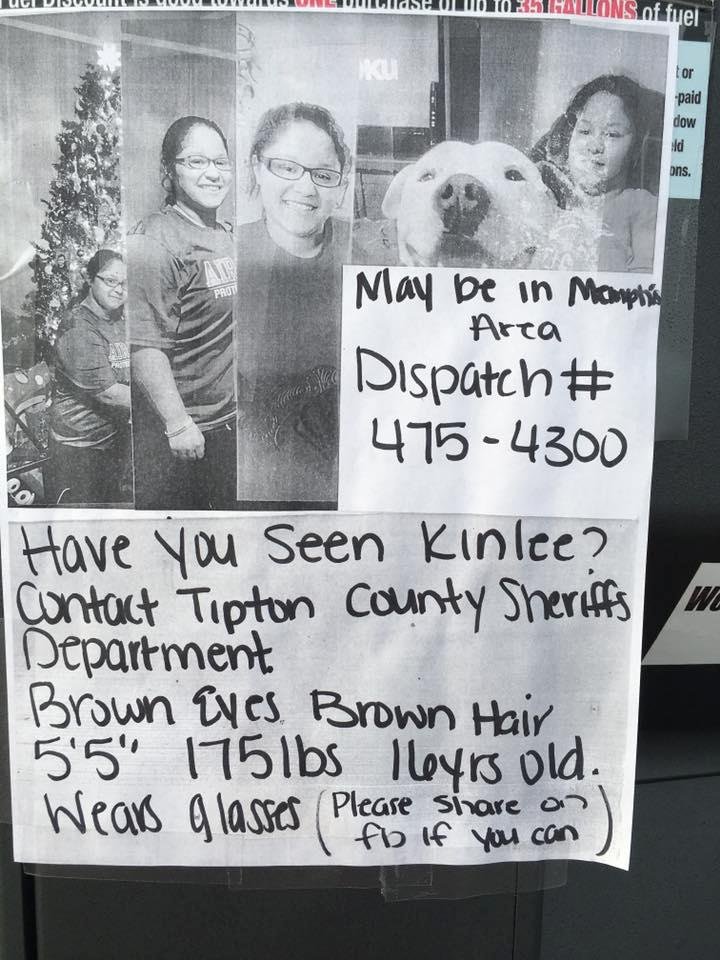 Fuel Discount is good towards ONE purchase of up to 35 GALLONS of fuel
May be in Memphis
Area
Dispatch #
475-4300
Have You Seen Kinlee?
Contact Tipton County Sheriffs
Department
Brown Eyes Brown Hair
5'5" 175lbs 16yrs old.
Wears glasses (Please share on
fb if you can)